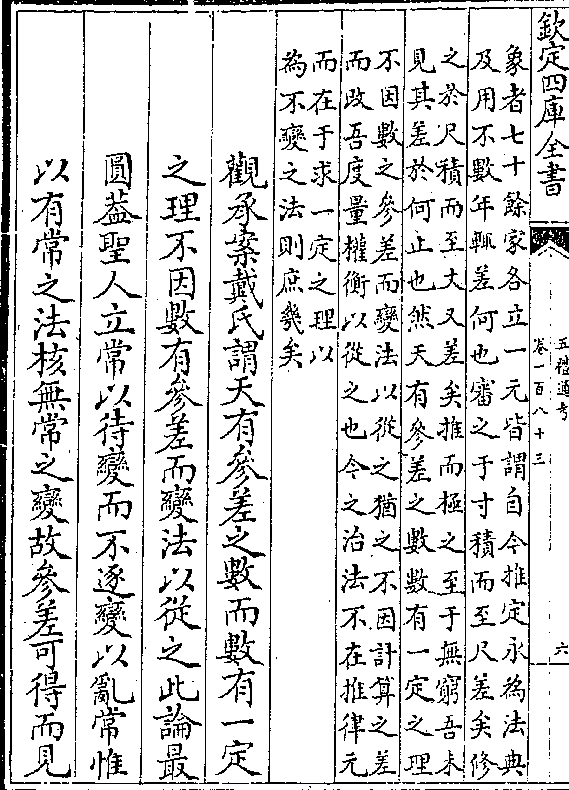 欽定四庫全書
五禮通考
卷一百八十三
六
象者七十餘家各立一元皆謂自今推定永為法典
及用不數年輒差何也審之于寸積而至尺差矣修
之於尺積而至丈又差矣推而極之至于無窮吾未
見其差於何止也然天有參差之數數有一定之理
不因數之參差而變法以從之猶之不因計算之差
而改吾度量權衡以從之也今之治法不在推律元
而在于求一定之理以
為不變之法則庶幾矣
觀承案戴氏謂天有參差之數而數有一定
之理不因數有參差而變法以從之此論最
圓葢聖人立常以待變而不逐變以亂常惟
以有常之法核無常之變故參差可得而見